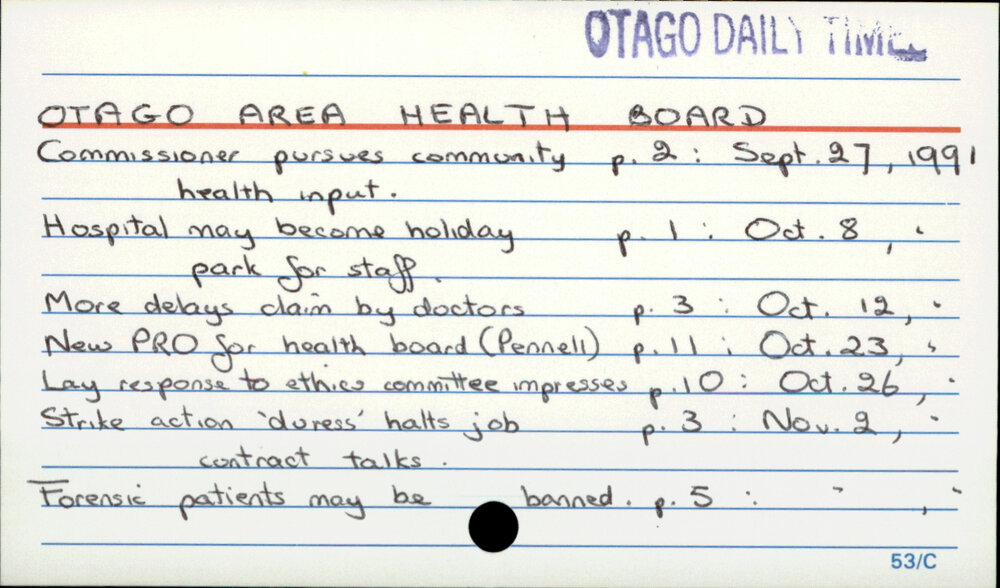 OTAGO DAILY TIMES
OTAGO AREA HEALTH BOARD
Commissioner pursues community p. 2 : Sept. 27, 1991
health input.
Hospital may become holiday p. 1 : Oct. 8, "
park for staff.
More delays claim by doctors p. 3 : Oct. 12, "
New PRO for health board (Pennell) p. 11 : Oct. 23, "
Lay response to ethics committee impresses p. 10 : Oct. 26, "
Strike action 'duress' halts job p. 3 : Nov. 2, "
contract talks.
Forensic patients may be banned. p. 5 : " , "
53/C